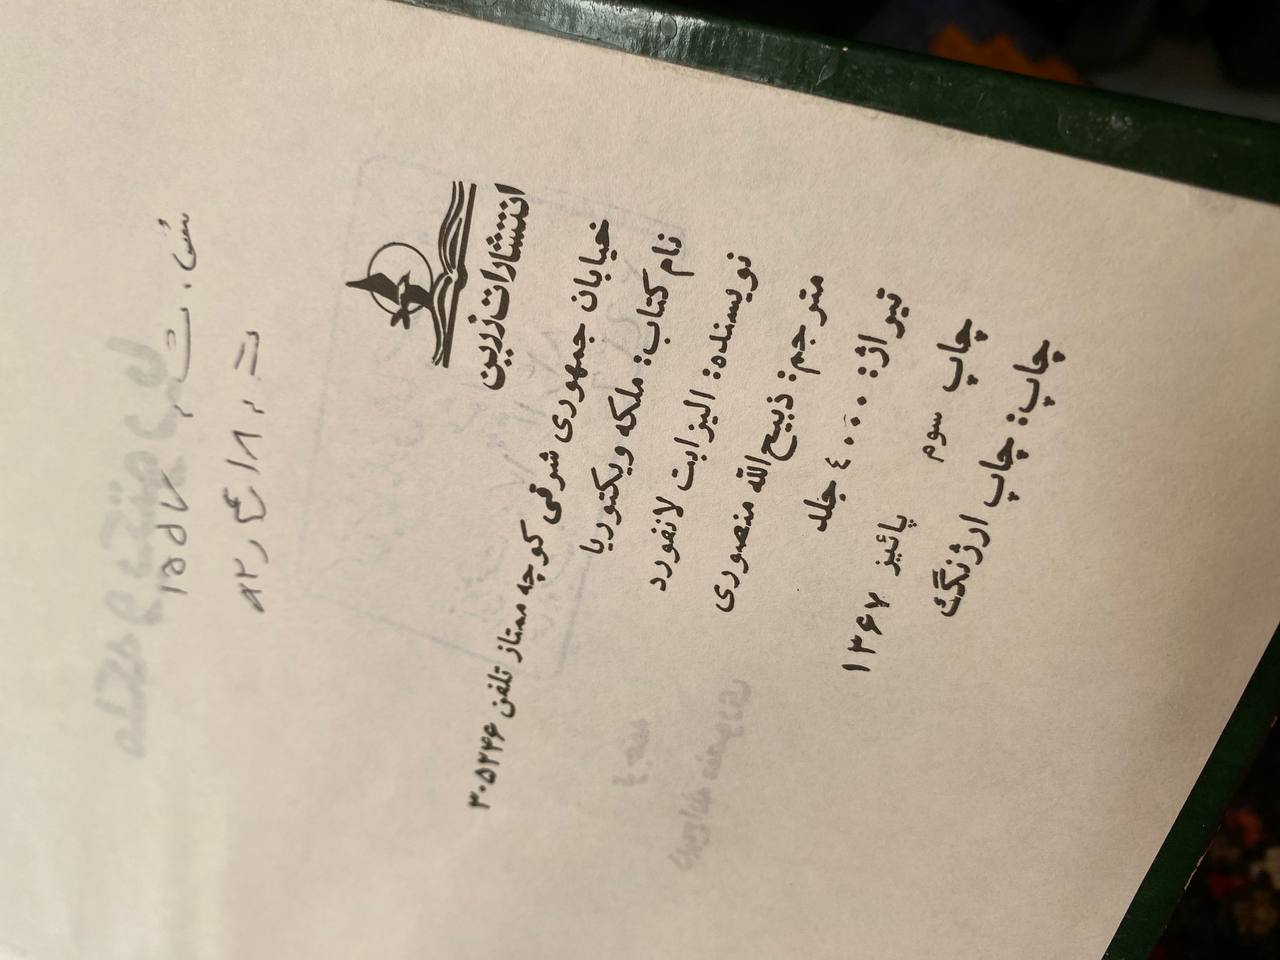 ش. ثبت ۱۵۵۷۸
ت ۸۲/۴/۱۸
انتشارات زرین
خیابان جمهوری شرقی کوچه ممتاز تلفن ۳۰۵۲۴۶
نام کتاب: ملکه ویکتوریا
نویسنده: الیزابت لانفورد
مترجم: ذبیح‌الله منصوری
تیراژ: ۴۰۰۰ جلد
چاپ سوم پائیز ۱۳۶۷
چاپ: چاپ ارژنگ